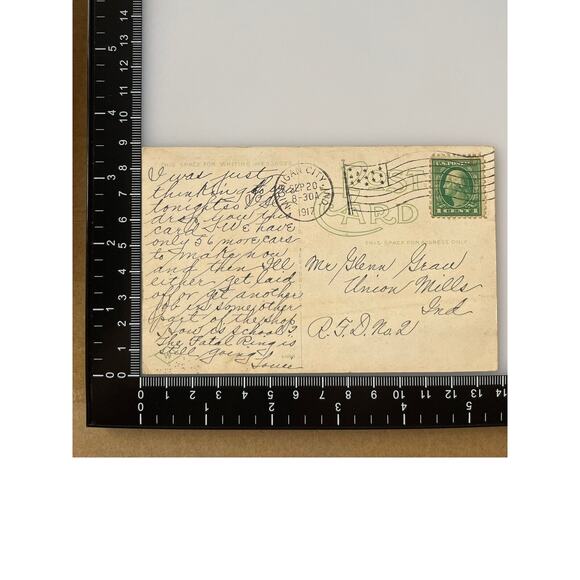 THIS SPACE FOR WRITING MESSAGES
I was just
thinking of you
tonight so I'll
drop you this
card. We have
only 56 more cars
to make now
and then I'll
either get laid
off or get another
job in some other
part of the shop
How is School?
The Fatal Ring is
still going
MICHIGAN CITY, IND.
SEP 20
8-30A
1917
POST
CARD
U.S. POSTAGE
1 CENT 1
THIS SPACE FOR ADDRESS ONLY
Mr Glenn Grau
Union Mills
Ind
R.F.D. No. 2
0 1 2 3 4 5 6 7 8 9 10 11 12 13 14
0 1 2 3 4 5
0 1 2 3 4 5
0 1 2 3 4 5 6 7 8 9 10 11 12 13 14